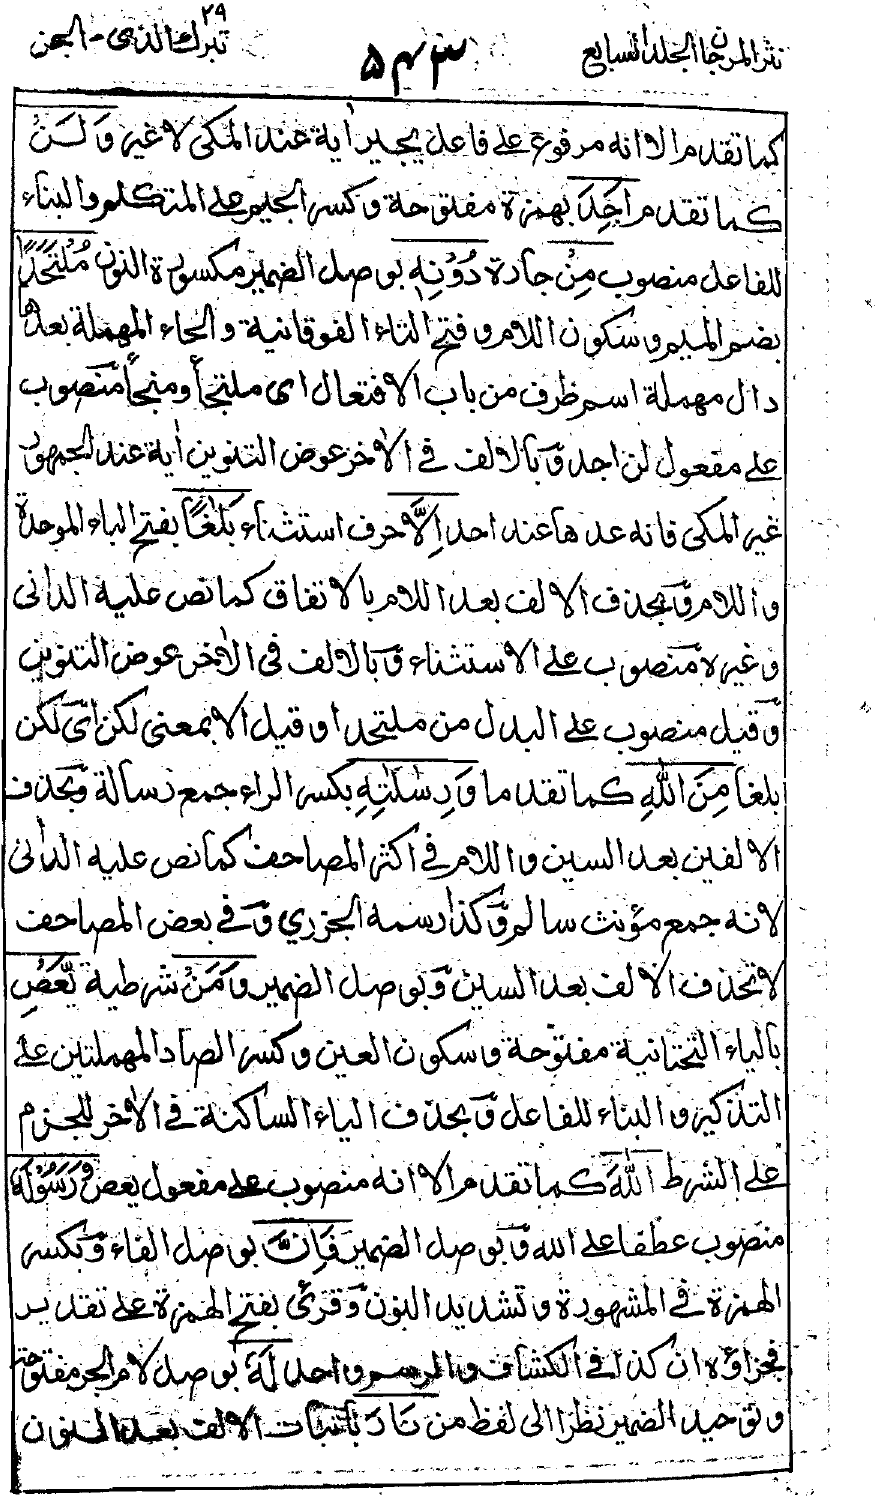 نثر المرجان الجلد السابع
٥٤٣
تبرك الذى - الجن
٢٩
كما تقدم الا انه مرفوع على فاعل يجير اٰية عند المكى لا غير وَلَنْ
كما تقدم اَجِدَ بهمزة مفتوحة وكسر الجيم على المتكلم والبناء
للفاعل منصوب مِنْ جارة دُوْنِهٖ بوصل الضمير مكسورة النون مُلْتَحَدًا
بضم الميم وسكون اللام وفتح التاء الفوقانية والحاء المهملة بعدها
دال مهملة اسم ظرف من باب الافتعال اى ملتجأ ومنجأ منصوب
على مفعول لن اجد وبالالف فى الاٰخر عوض التنوين اٰية عند الجمهور
غير المكى فانه عدها عند احد اِلَّا حرف استثناء بَلٰغًا بفتح الباء الموحدة
واللام وبحذف الالف بعد اللام بالاتفاق كما نص عليه الدانى
وغيره منصوب على الاستثناء وبالالف فى الاٰخر عوض التنوين
وقيل منصوب على البدل من ملتحدا وقيل الا بمعنى لكن اى لكن
بلغا مِنَ اللّٰهِ كما تقدما وَرِسٰلٰتِهٖ بكسر الراء جمع رسالة وبحذف
الالفين بعد السين واللام فى اكثر المصاحف كما نص عليه الدانى
لانه جمع مؤنث سالم وكذا رسمه الجزري وفى بعض المصاحف
لا تحذف الالف بعد السين وبوصل الضمير وَمَنْ شرطية يَّعْصِ
بالياء التحتانية مفتوحة وسكون العين وكسر الصاد المهملتين على
التذكير والبناء للفاعل وبحذف الياء الساكنة فى الاٰخر للجزم
على الشرط اللّٰهَ كما تقدم الا انه منصوب على مفعول يعص وَرَسُوْلَهٗ
منصوب عطفا على الله وبوصل الضمير فَاِنَّ بوصل الفاء وبكسر
الهمزة فى المشهورة وتشديد النون وقرئ بفتح الهمزة على تقدير
فجزاؤه ان كذا فى الكشاف والرسم واحد لَهٗ بوصل لام الجر مفتوحة
وتوحيد الضمير نظرا الى لفظ من نَارَ باثبات الالف بعد النون